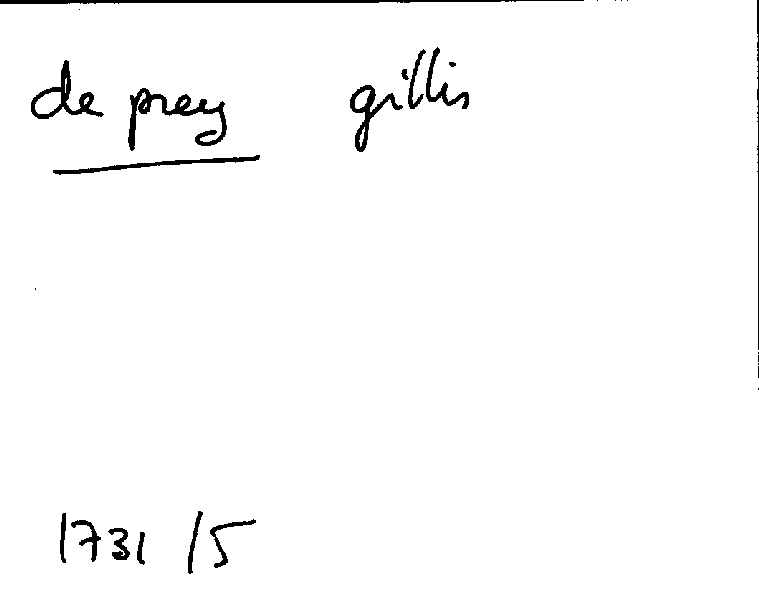 de prey gillis
1731 /5